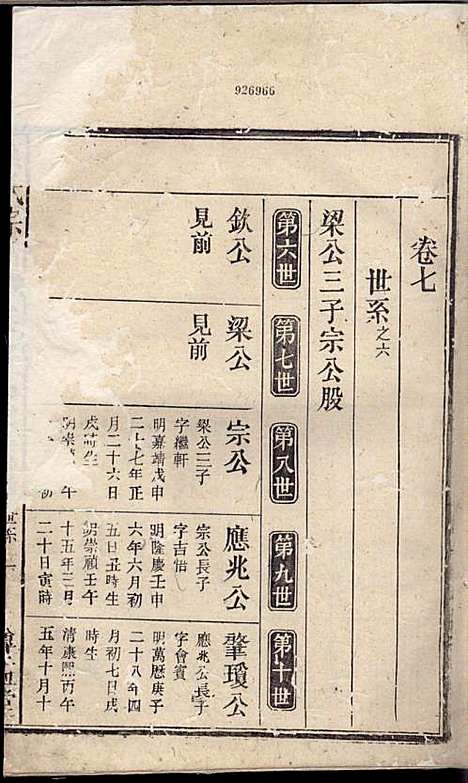 926966
卷七
世系之六
梁公三子宗公股
第六世
第七世
第八世
第九世
第十世
欽公
見前
梁公
見前
宗公
梁公三子
字繼軒
明嘉靖戊申
二十七年正
月二十六日
戌時生
應兆公
宗公長子
字吉悟
明隆慶壬申
六年六月初
五日丑時生
明崇禎壬午
十五年三月
二十日寅時
肇瓊公
應兆公長子
字會賓
明萬歷庚子
二十八年四
月初七日戌
時生
清康熙丙午
五年十月十